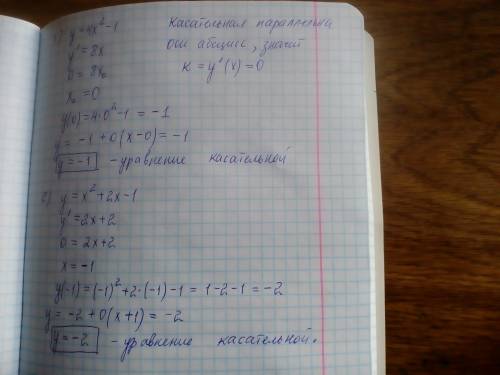 y=4x²-1
y'=8x
0=8x₀
x₀=0
y(0)=4·0²-1=-1
y=-1+0(x-0)=-1
y=-1 -уравнение касательной
касательная параллельна
оси абсцисс, значит
k=y'(x)=0
y=x²+2x-1
y'=2x+2
0=2x+2
x=-1
y(-1)=(-1)²+2·(-1)-1=1-2-1=-2
y=-2+0(x+1)=-2
y=-2 -уравнение касательной.